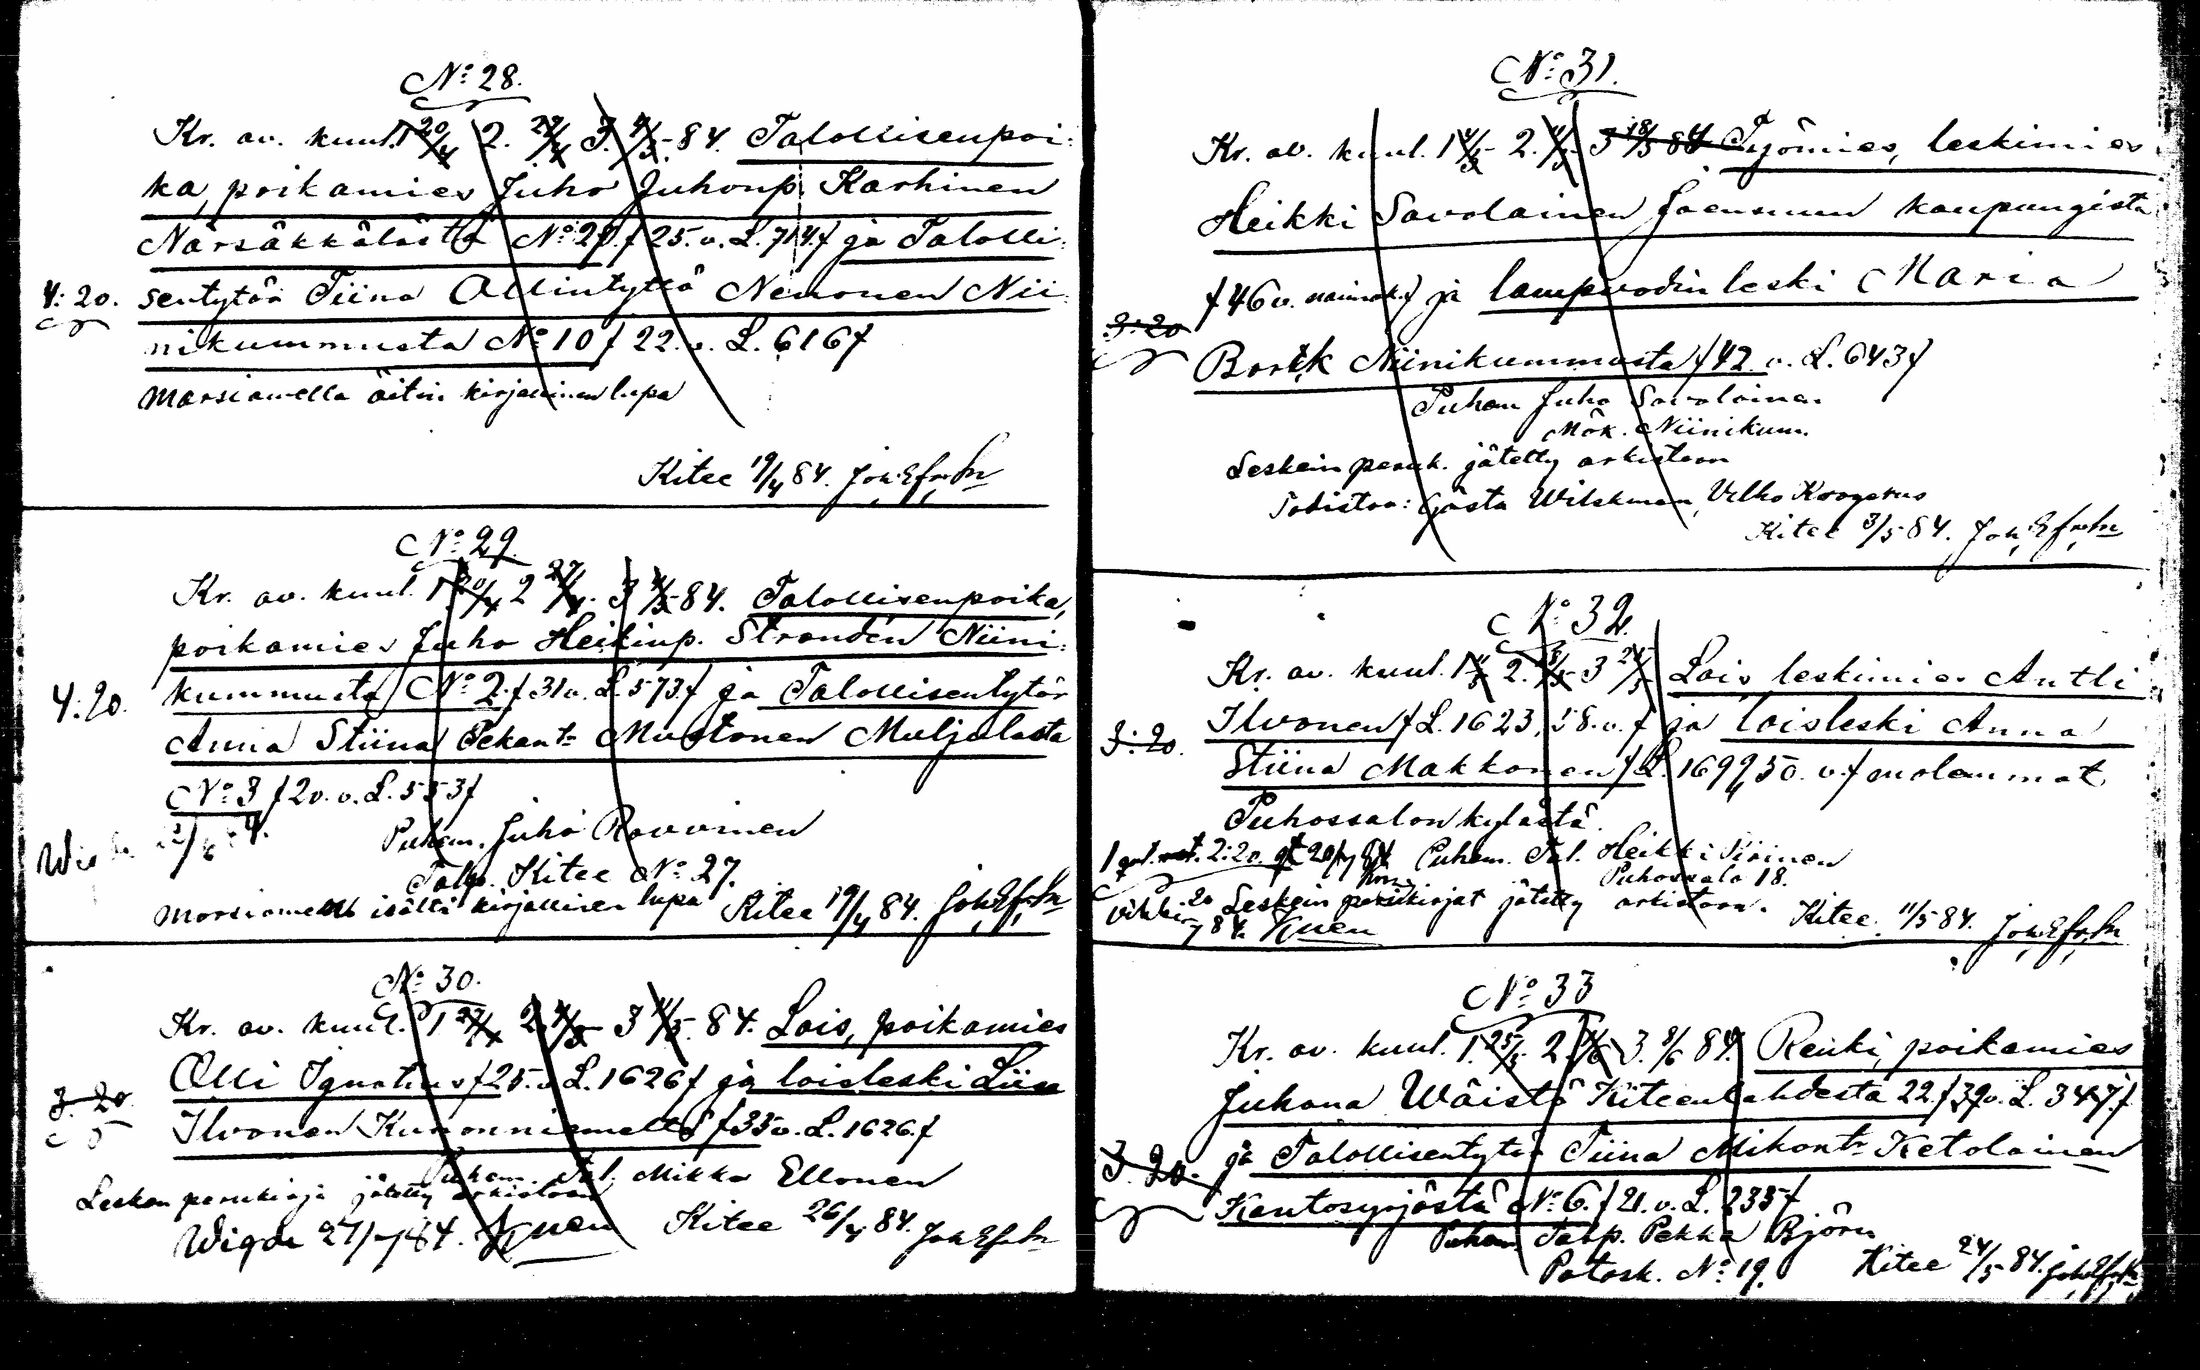 No 28.
Kr. av. kuul. 1 20/4 2. 27/4 3. 4/5 84. Talollisenpoi-
ka, poikamies Juho Juhonp. Karhinen
Närsäkkälästä No 27 f 25. v. L. 714 f ja Talolli-
4:20. sentytär Tiina Ollintyttö Nenonen Nii-
nikummusta No 10 f 22. v. L. 616 f
Morsiamella äitin kirjallinen lupa
Kitee 19/4 84.
No 29.
Kr. av. kuul. 1 20/4 2 27/4 3 4/5 84. Talollisenpoika,
poikamies Juho Heikinp. Strandén Niini-
4:20. kummusta No 2. f 31 v. L. 573 f ja Talollisentytär
Anna Stiina Pekant. Mustonen Muljulasta
No 3 f 20. v. L. 553 f
Puhem. Juho Rovvinen
Talp. Kitee No 27.
Morsiamella isältä kirjallinen lupa Kitee 19/4 84.
No 30.
Kr. av. kuul. 1 27/4 2 4/5 3 11/5 84. Lois, poikamies
Olli Ignatius f 25. v. L. 1626 f ja loisleski Liisa
3:20 Ilvonen Kunonniemeltä f 35 v. L. 1626. f
Puhem. Tal. Mikko Ellonen
Lesken perukirja jätetty arkistoon
Wigde 27/7 84. Kitee 26/4 84.
No 31.
Kr. av. kuul. 1 4/5 2. 11/5 3 18/5 84 Työmies, leskimies
Heikki Savolainen Joensuun kaupungista
f 46 v. f ja lampuodin leski Maria
3:20 Borek Niinikummusta f 42 v. L. 643 f
Puhem Juho Savolainen
Mök. Niinikum.
Leskein peruk. jätetty arkistoon
Todistaa: Gösta Wilskman, Velho Krogerus
Kitee 3/5 84.
No 32.
Kr. av. kuul. 1 11/5 2. 18/5 3 25/5 Lois leskimies Antti
3:20. Ilvonen f L. 1623, 58. v. f ja loisleski Anna
Stiina Makkonen f L. 1699, 50. v. f molemmat
Puhossalon kylästä.
Puhem. Tal. Heikki
Puhossalo 18.
Leskein perukirjat jätetty arkistoon. Kitee 11/5 84.
No 33
Kr. av. kuul. 1. 25/5 2 1/6 3. 8/6 84. Renki, poikamies
Juhana Wäistö Kiteenlahdesta 22. f 39 v. L. 347. f
3:20. ja Talollisentytär Tiina Mikont. Ketolainen
Kantosyrjästä No 6. f 21. v. L. 235 f
Puhem Talp. Pekka Björn
Potosk. No 19. Kitee 24/5 84.